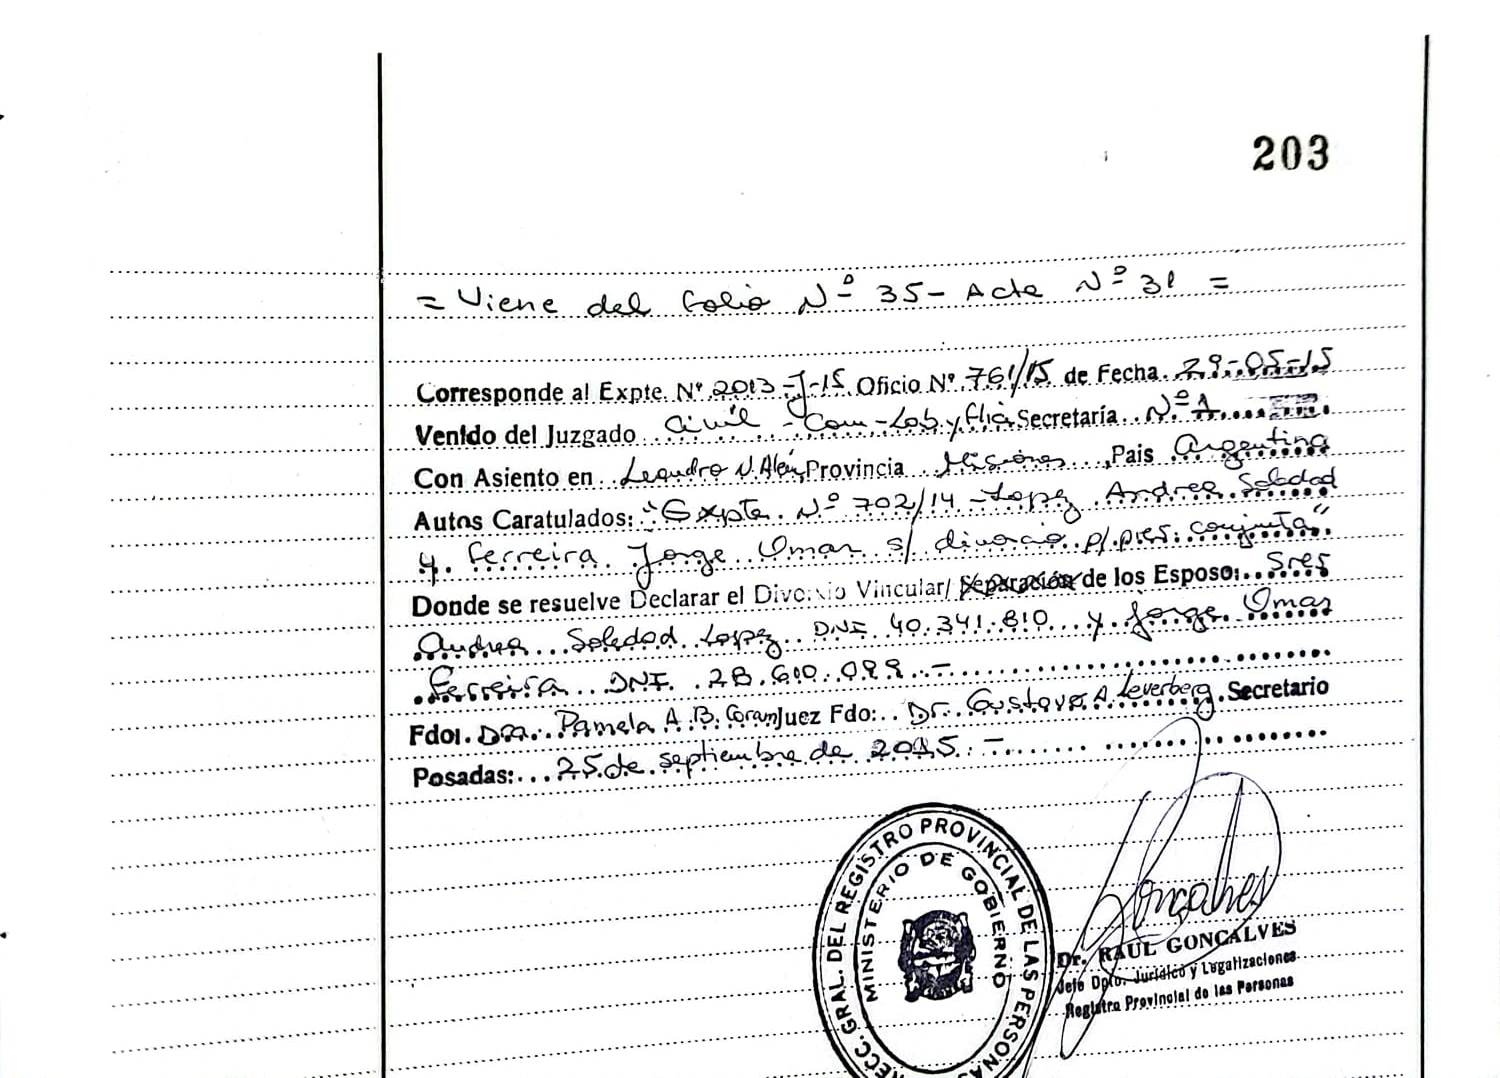 203
= Viene del folio Nº 35 - Acta Nº 31 =
Corresponde al Expte. Nº 2013-J-15 Oficio Nº 761/15 de Fecha 29-05-15
Venido del Juzgado Civil - Com - Lab y flia Secretaría Nº A
Con Asiento en Leandro N. Alem, Provincia Misiones, Pais Argentina
Autos Caratulados: "Expte. Nº 702/14 - Lopez Andrea Soledad
y Ferreira Jorge Omar s/ divorcio p/ pres. conjunta".
Donde se resuelve Declarar el Divorcio Vincular/ Separación de los Esposo: Sres
Andrea Soledad Lopez DNI 40.341.810 y Jorge Omar
Ferreira DNI. 28.610.099.-
Fdo: Dra. Pamela A. B. Juez Fdo: Dr. Gustavo A. Leverberg Secretario
Posadas: 25 de septiembre de 2015.-
RECC. GRAL. DEL REGISTRO PROVINCIAL DE LAS PERSONAS
MINISTERIO DE GOBIERNO
Goncalves
Dr. RAUL GONCALVES
Jefe Dpto. Jurídico y Legalizaciones
Registro Provincial de las Personas